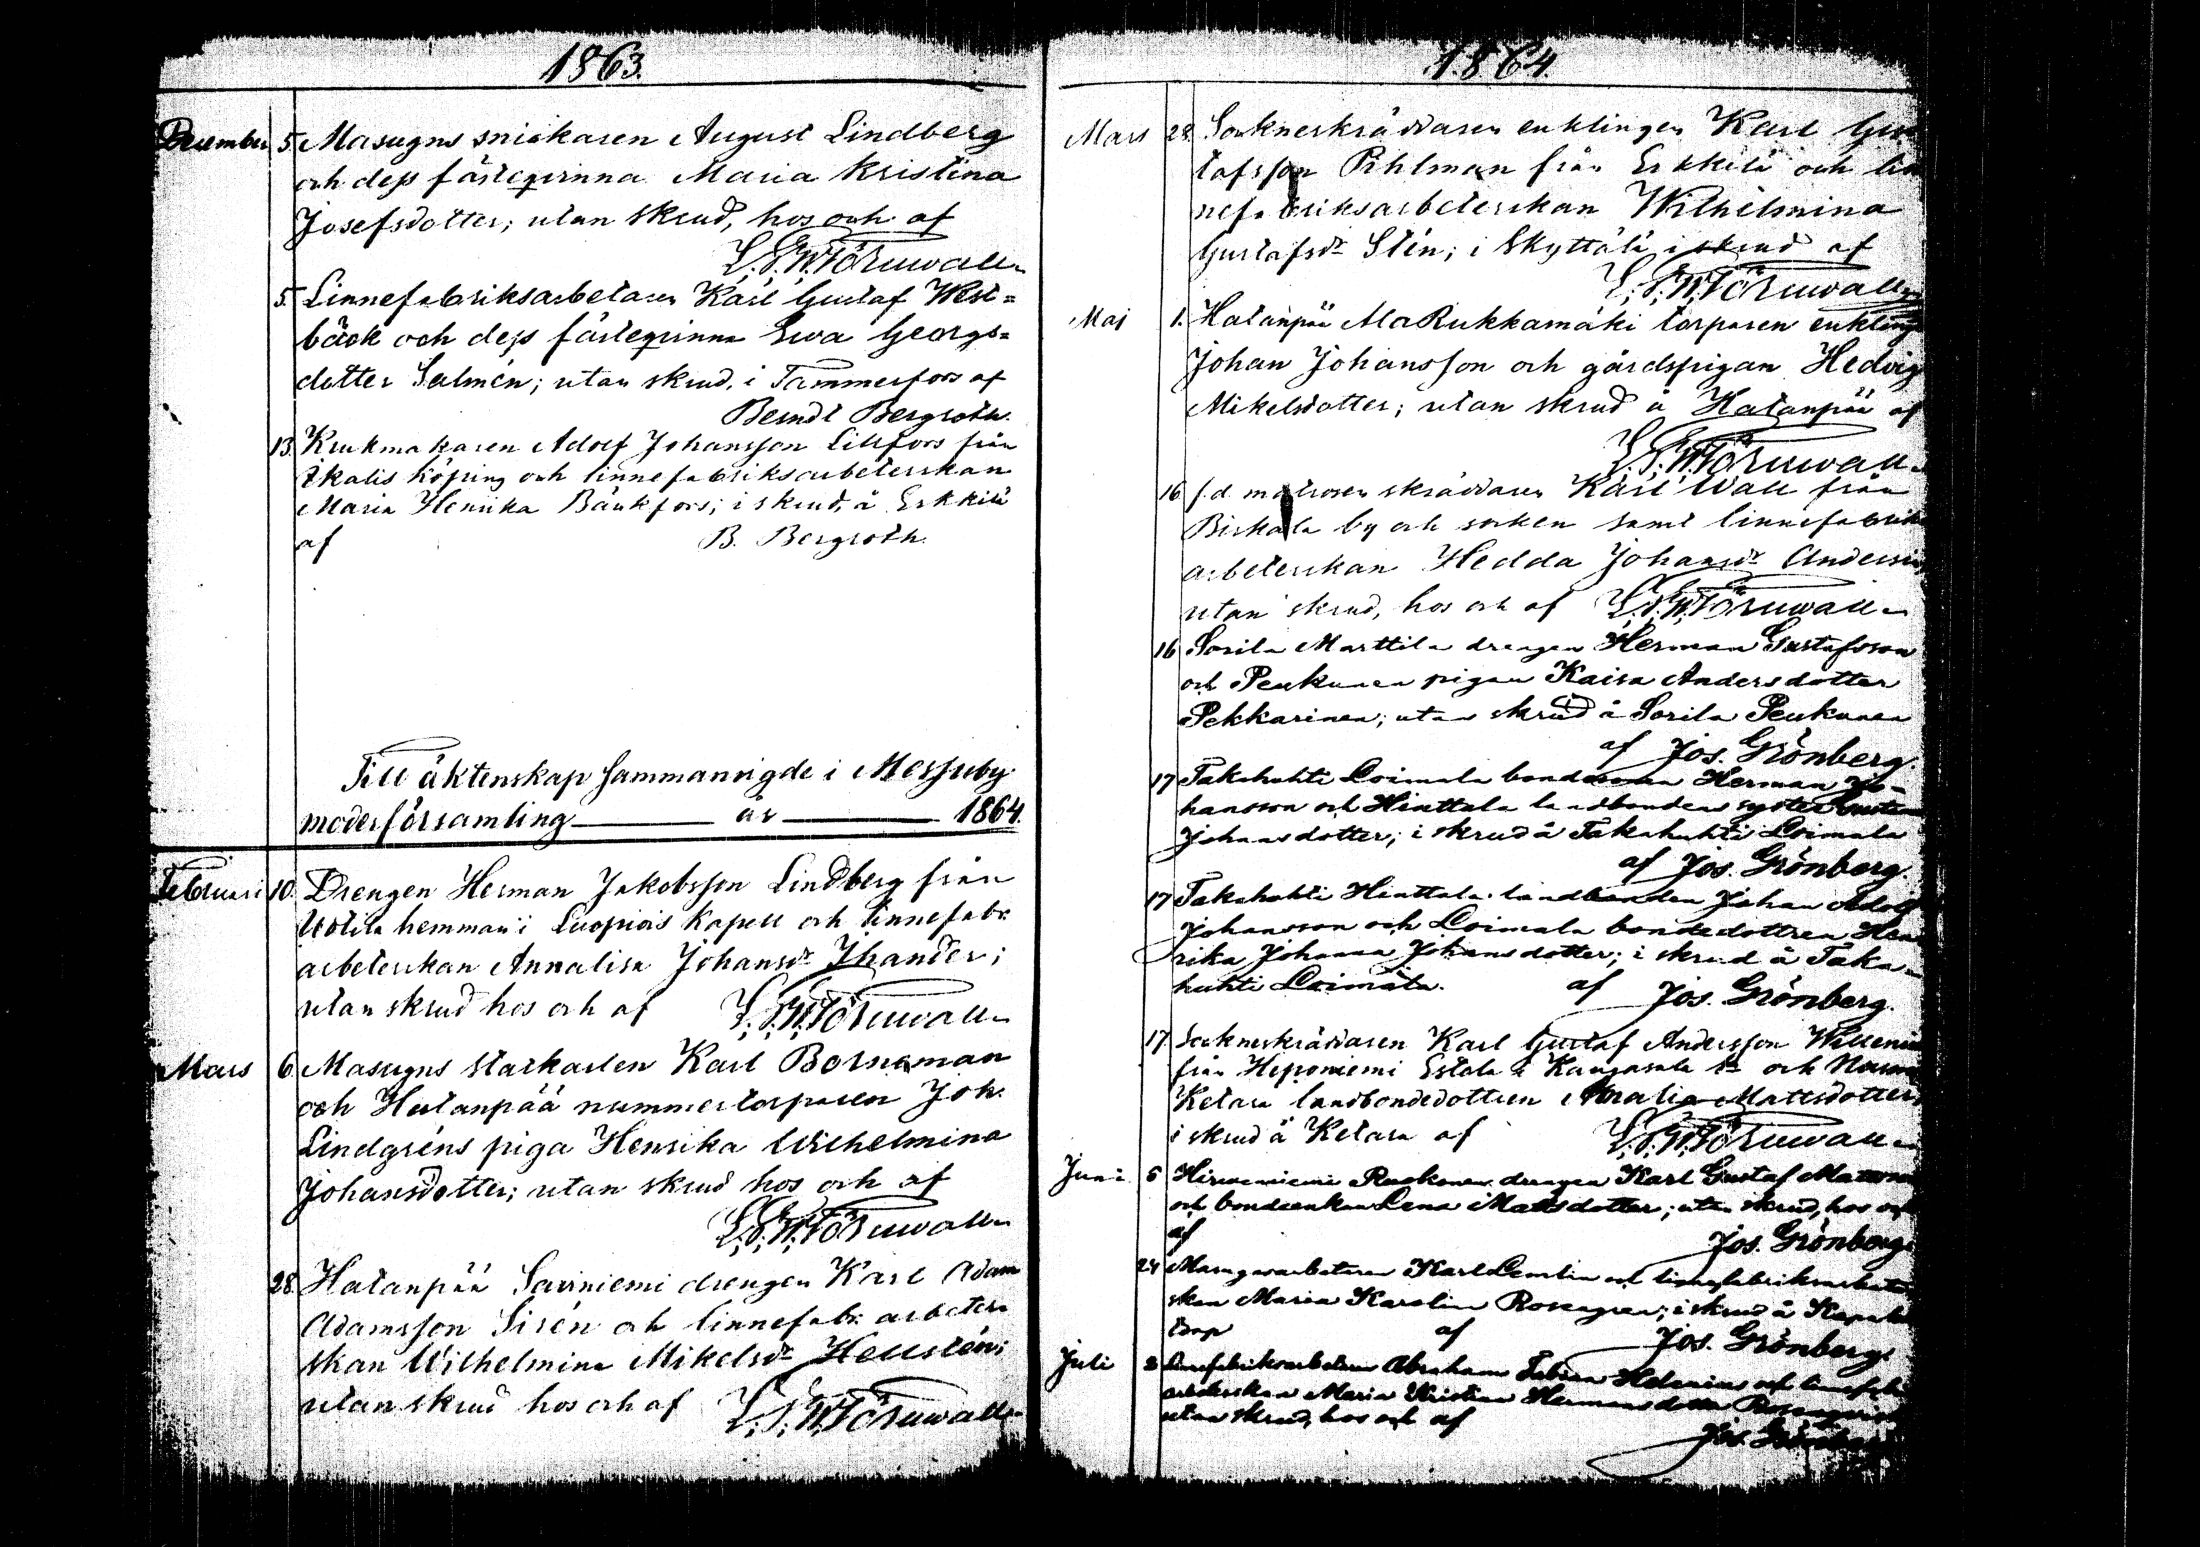 1863.
December 5. Masugns snickaren August Lindberg
och dess fästeqvinna Maria Kristina
Josefsdotter; utan skrud, hos och af
L. G. W. Törnwall
5. Linnefabriksarbetaren Karl Gustaf West=
bäck och dess fästeqvinna Ewa Georgs=
dotter Salmén; utan skrud, i Tammerfors af
Berndt Bergroth.
13. Krukmakaren Adolf Johansson Lillfors från
Ikalis köping och linnefabriksarbeterskan
Maria Henrika Bäckfors; i skrud, å Erkkilä
af B. Bergroth.
Till äktenskap sammanvigde i Messuby
moderförsamling år 1864.
Februari 10. Drengen Herman Jakobsson Lindberg från
Uotila hemman i Luopiois Kapell och linnefabr.
arbeterskan Annalisa Johansdr Ihander;
utan skrud hos och af
Mars 6. Masugns starkarlen Karl Borneman
och Hatanpää nummertorparen Joh.
Lindgréns piga Henrika Wilhelmina
Johansdotter; utan skrud hos och af
L. G. W. Törnwall
28. Hatanpää Saviniemi drengen Karl Adam
Adamsson Sirén och linnefabr. arbeter=
skan Wilhelmina Mikelsdr Hellstén;
utan skrud hos och af L. G. W. Törnwall
1864.
Mars 28. Sockneskräddaren enklingen Karl Gus
tafsson Pihlman från Erkkilä och lin
nefabriksarbeterskan Wilhelmina
Gustafsdr Stén; i Skyttälä i skrud af
L. G. W. Törnwall
Maj 1. Hatanpää Ala Rukkamäki torparen enkling
Johan Johansson och gårdspigan Hedvig
Mikelsdotter; utan skrud å Hatanpää af
L. G. W. Törnwall
16 f.d. matrosen skräddaren Karl Wall från
Birkala by och socken samt linnefabriks
arbeterskan Hedda Johansdr
utan skrud, hos och af L. G. W. Törnwall
16 Sorila Marttila drengen Herman Gustafsson
och Peukunen pigan Kaisa Andersdotter
Pekkarinen; utan skrud å Sorila Peukunen
af Jos. Grönberg.
17 Takahuhti Loimala Herman Jo-
hansson och Hinttala landbonden syster
Johansdotter; i skrud å Takahuhti Loimala
af Jos. Grönberg.
17 Takahuhti Hinttala landbonden Johan Adolf
Johansson och Loimala bondedottren Hen
rika Johanna Johansdotter; i skrud å Taka-
huhti Loimala. af Jos. Grönberg.
17 Sockneskräddaren Karl Gustaf Andersson
från Heponiemi Estola i Kangasala sn och
Ketara landbondedottren Amalia Mattsdotter,
i skrud å Ketara af L. G. W. Törnwall
Juni 5 Hirviniemi drengen Karl Gustaf Mattsson
och bondeenkan Lena Matsdotter; utan skrud, hos och
af Jos. Grönberg
24 Masugnsarbetaren Karl och linnefabriksarbeter
skan Maria Karolina Rosengren; i skrud å
torp af Jos. Grönberg
Juli 2 Linnefabriksarbetaren Abraham Fabian Helenius och linnefabr
arbeterskan Maria Kristina Hermansdotter
utan skrud, hos och af
Jos. Grönberg